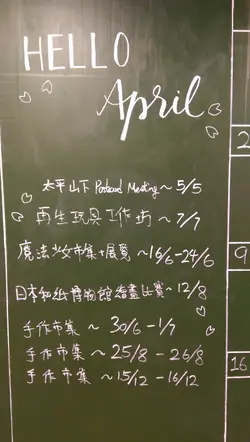 HELLO
April
太平山下 Postcard Meeting ~ 5/5
再生玩具工作坊 ~ 7/7
魔法少女市集+展覧 ~16/6-24/6
日本和紙博物館繪畫比賽~ 12/8
手作市集 ~ 30/6-1/7
手作市集 ~ 25/8 - 26/8
手作市集 ~ 15/12 - 16/12
2
9
16